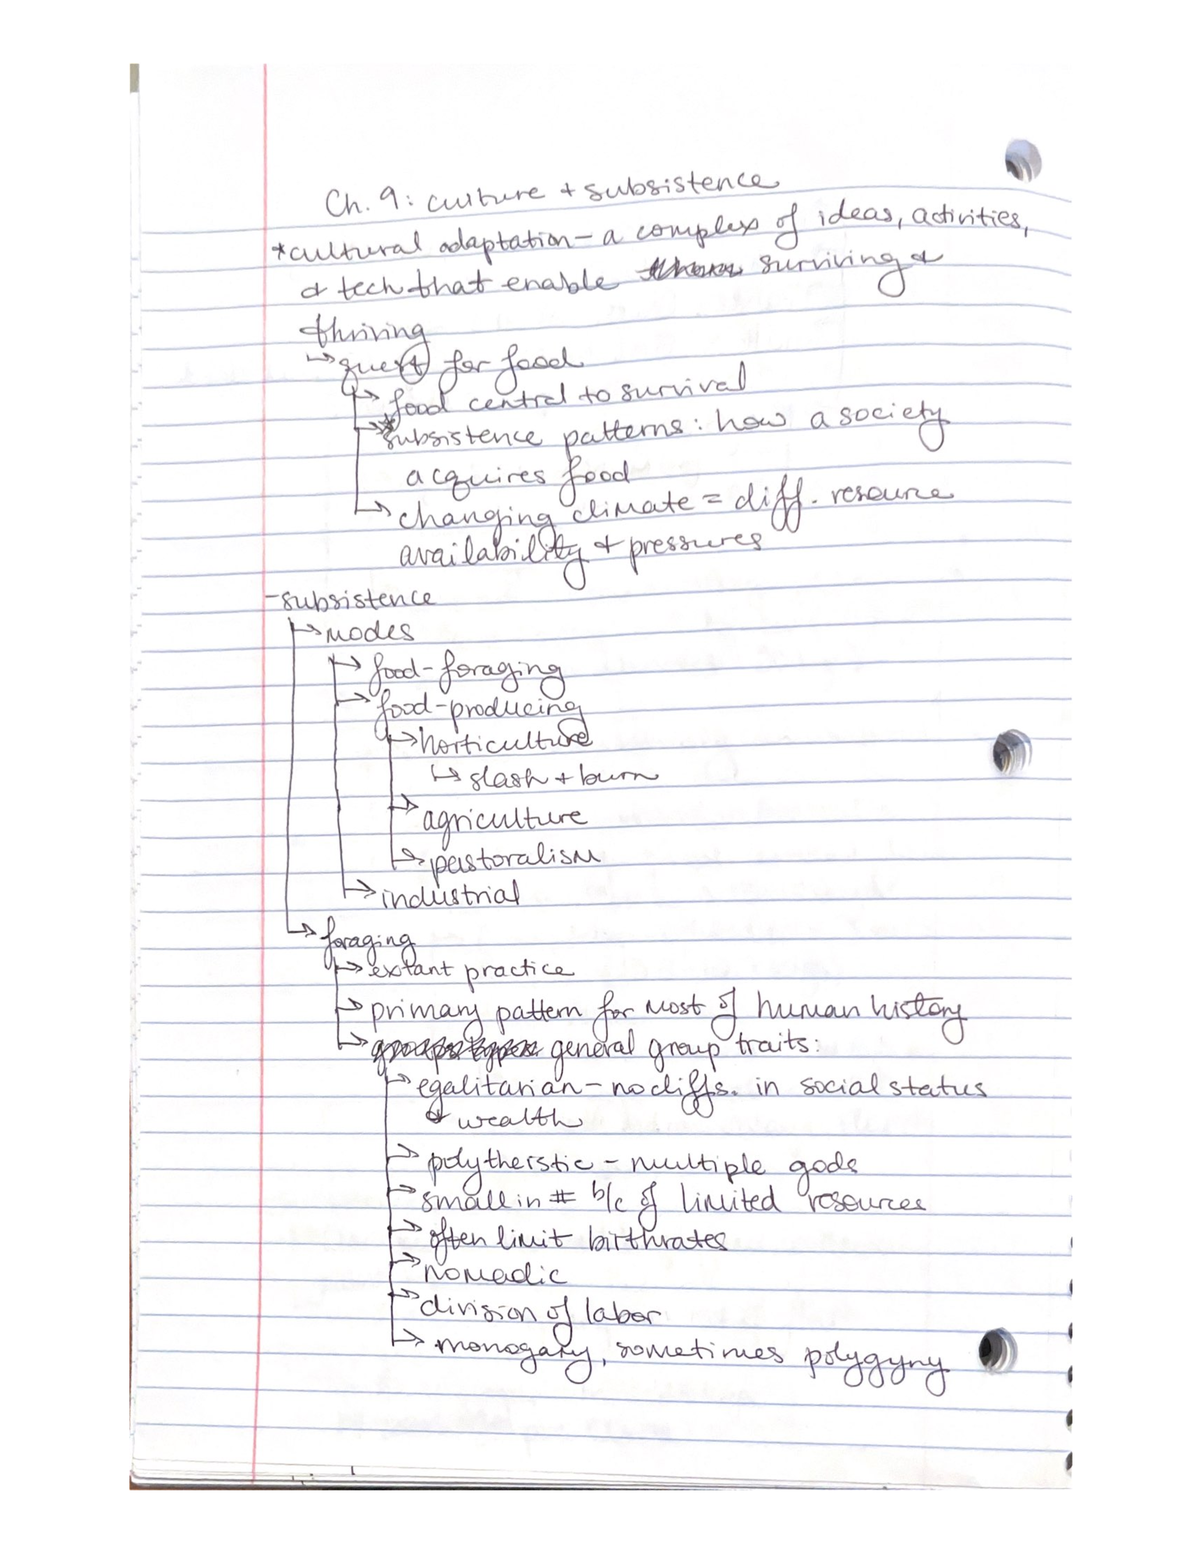 Ch. 9: culture + subsistence
*cultural adaptation – a complex of ideas, activities,
& tech that enable surviving &
thriving
↳ quest for food
↳ food central to survival
↳ *subsistence patterns: how a society
acquires food
↳ changing climate = diff. resource
availability & pressures
- subsistence
↳ modes
↳ food-foraging
↳ food-producing
↳ horticulture
↳ slash + burn
↳ agriculture
↳ pastoralism
↳ industrial
↳ foraging
↳ extant practice
↳ primary pattern for most of human history
↳ general group traits:
↳ egalitarian – no diffs. in social status
& wealth
↳ polytheistic – multiple gods
↳ small in # b/c of limited resources
↳ often limit birthrates
↳ nomadic
↳ division of labor
↳ monogamy, sometimes polygyny